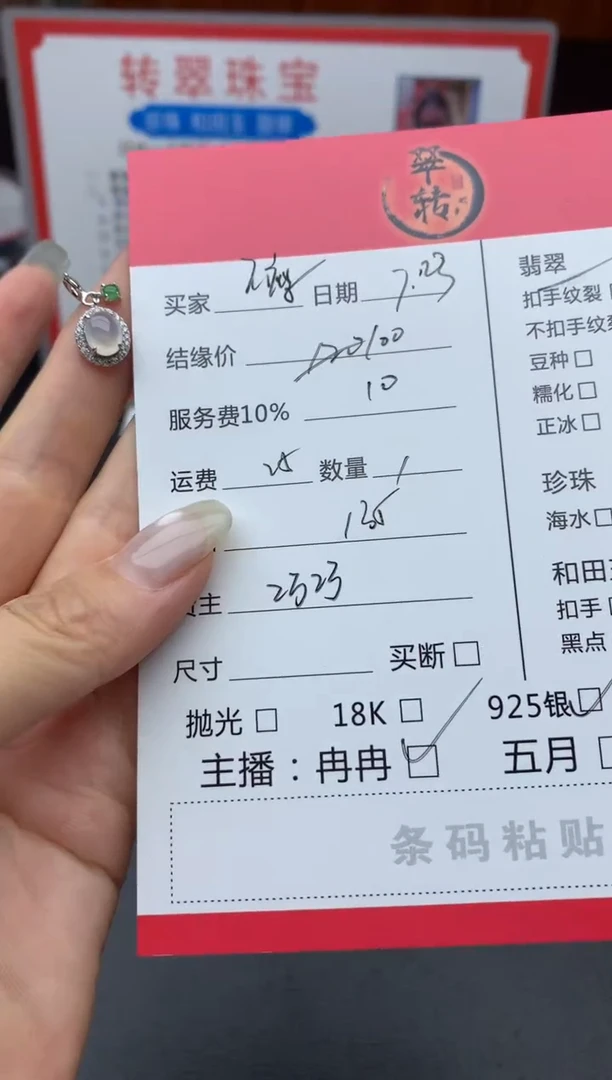 转翠珠宝
翠转
买家 日期 7.23
结缘价 100
服务费10% 10
运费 25 数量 1
135
主
尺寸 买断
抛光 18K 925银
主播：冉冉 五月
条码粘贴
翡翠
扣手纹裂
不扣手纹裂
豆种
糯化
正冰
珍珠
海水
和田玉
扣手
黑点